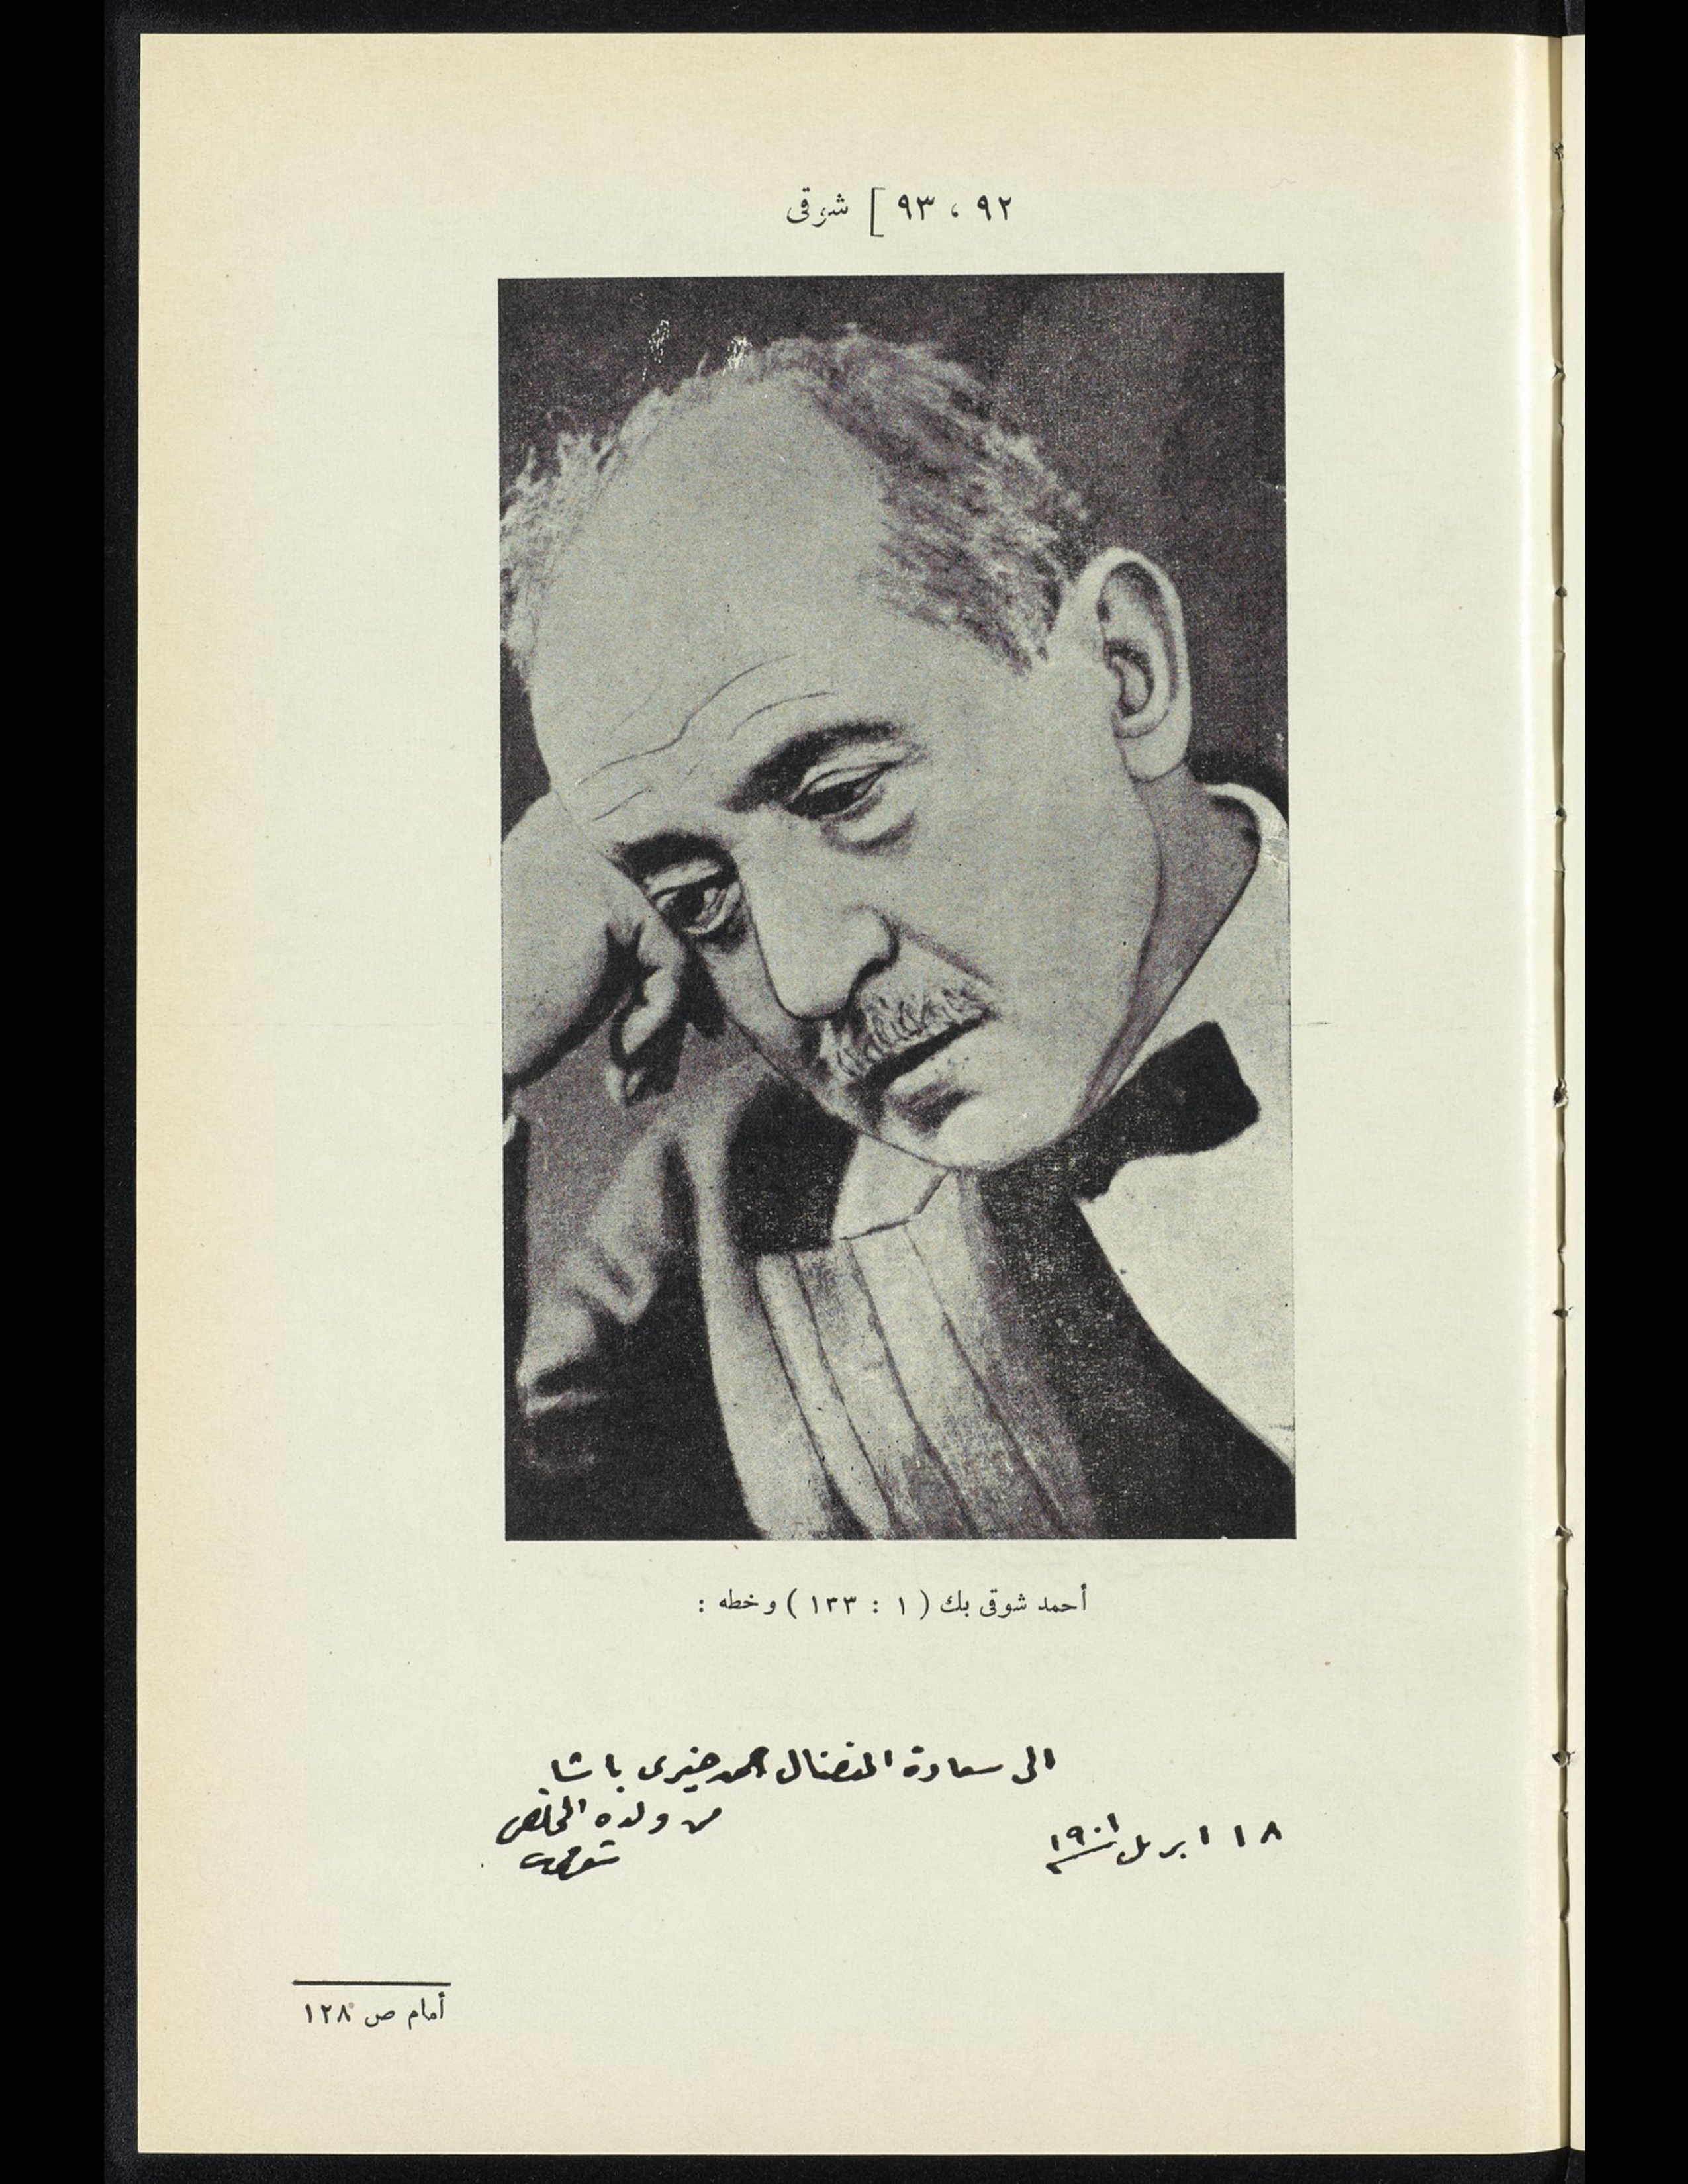 ٩٢ ، ٩٣ ] شوقى
أحمد شوقى بك ( ١ : ١٣٣ ) وخطه :
الى سعادة المفضال احمد خيرى باشا
من ولده المخلص
شوقى
١٨ ابريل ١٩٠١
أمام ص ١٢٨